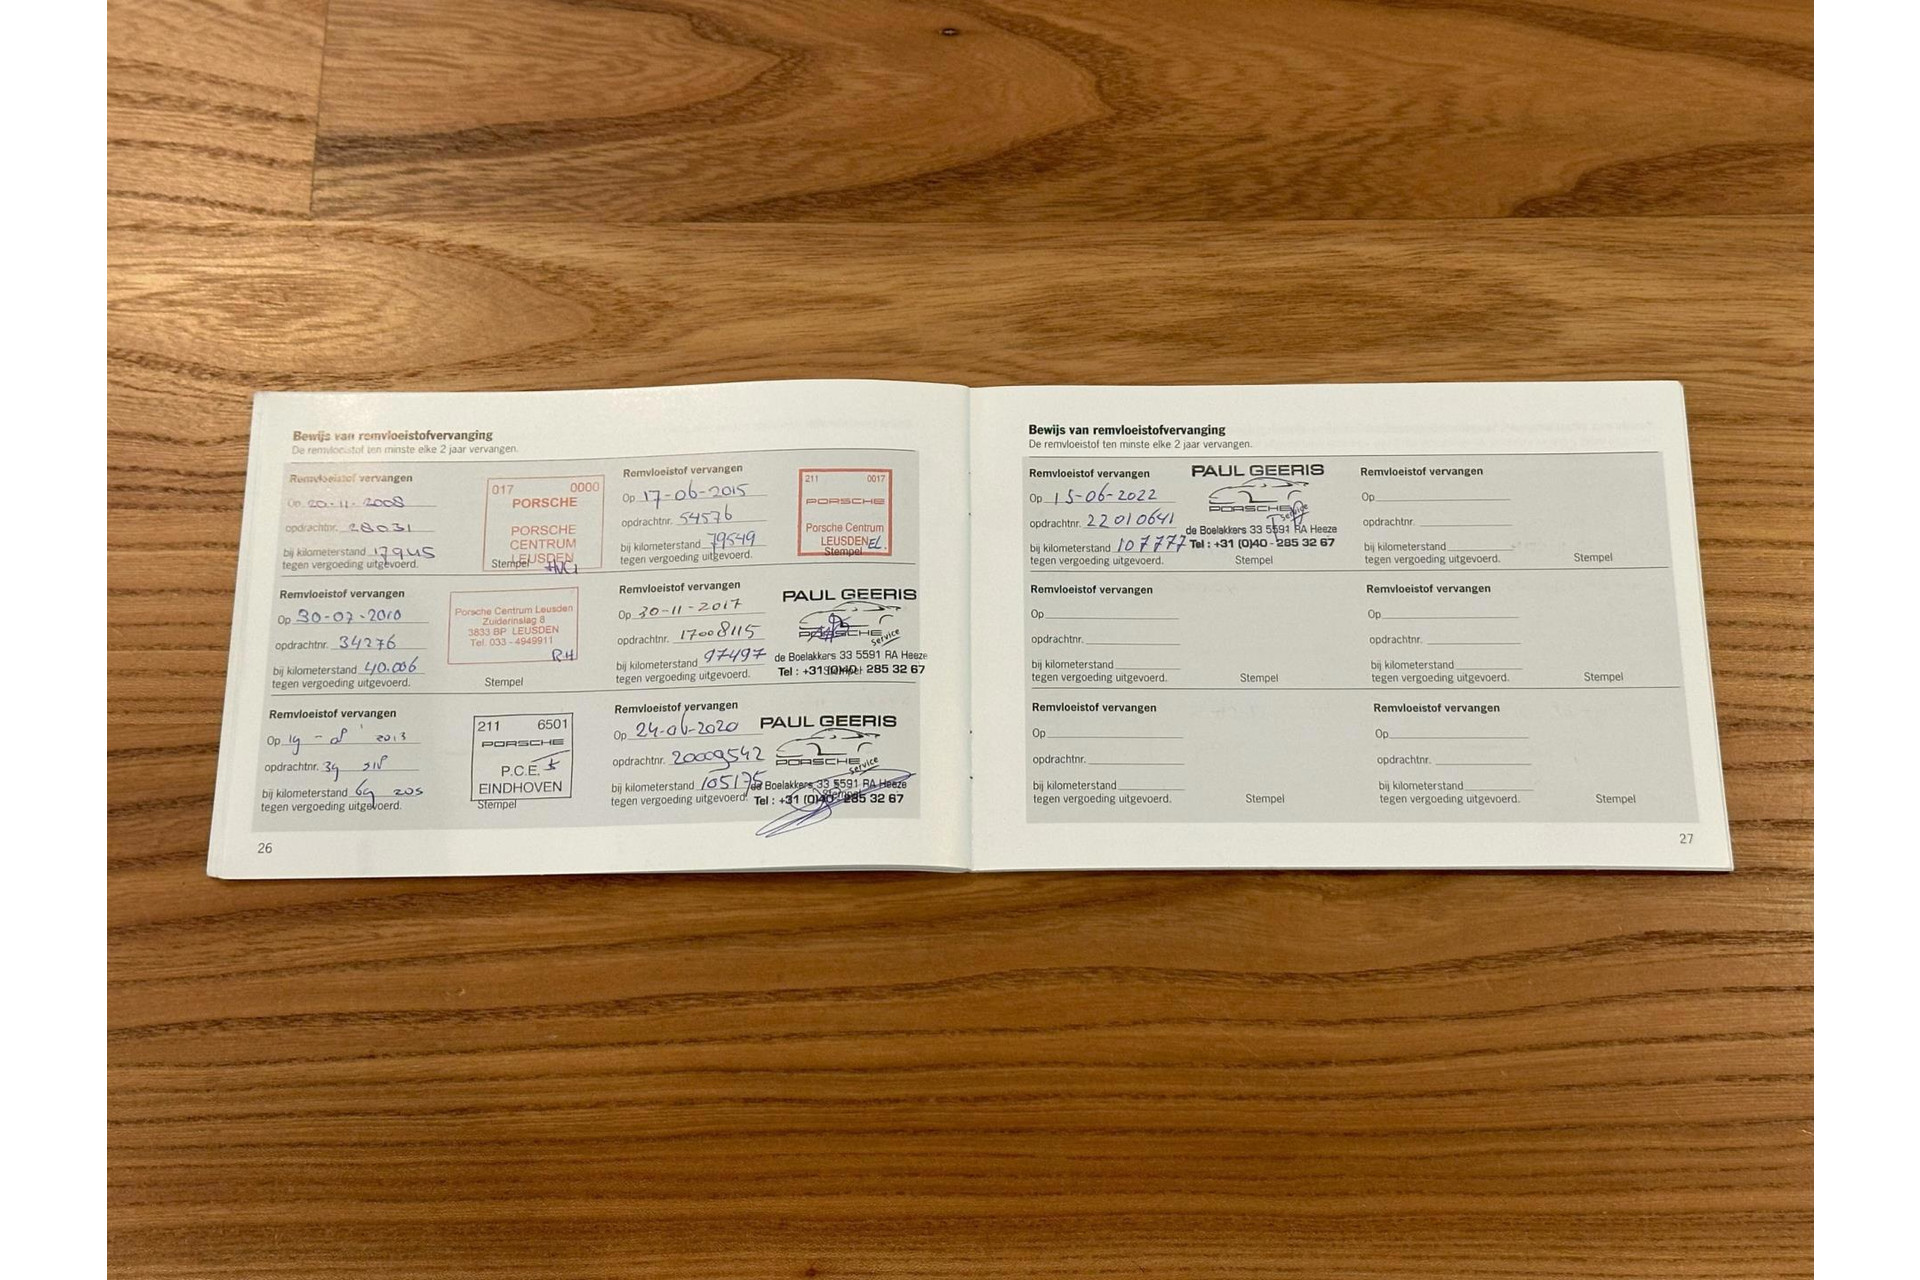 Bewijs van remvloeistofvervanging
De remvloeistof ten minste elke 2 jaar vervangen.
Remvloeistof vervangen
Op 20-11-2008
opdrachtnr. 28031
bij kilometerstand 17945
tegen vergoeding uitgevoerd.
017 0000
PORSCHE
PORSCHE
CENTRUM
LEUSDEN
Stempel
Remvloeistof vervangen
Op 30-07-2010
opdrachtnr. 34276
bij kilometerstand 40.006
tegen vergoeding uitgevoerd.
Porsche Centrum Leusden
Zuiderinslag 8
3833 BP LEUSDEN
Tel. 033 - 4949911
RH
Stempel
Remvloeistof vervangen
Op 19 - 2013
opdrachtnr. 39
bij kilometerstand 69 205
tegen vergoeding uitgevoerd.
211 6501
PORSCHE
P.C.E.
EINDHOVEN
Stempel
Remvloeistof vervangen
Op 17-06-2015
opdrachtnr. 54576
bij kilometerstand 79549
tegen vergoeding uitgevoerd.
211 0017
PORSCHE
Porsche Centrum
LEUSDEN EL.
Stempel
Remvloeistof vervangen
Op 30-11-2017
opdrachtnr. 17008115
bij kilometerstand 97497
tegen vergoeding uitgevoerd.
PAUL GEERIS
PORSCHE service
de Boelakkers 33 5591 RA Heeze
Tel : +31 (0)40 - 285 32 67
Stempel
Remvloeistof vervangen
Op 24-06-2020
opdrachtnr. 20009542
bij kilometerstand 105175
tegen vergoeding uitgevoerd.
PAUL GEERIS
PORSCHE service
de Boelakkers 33 5591 RA Heeze
Tel : +31 (0)40 - 285 32 67
Stempel
26
Bewijs van remvloeistofvervanging
De remvloeistof ten minste elke 2 jaar vervangen.
Remvloeistof vervangen
Op 15-06-2022
opdrachtnr. 22010641
bij kilometerstand 107777
tegen vergoeding uitgevoerd.
PAUL GEERIS
PORSCHE service
de Boelakkers 33 5591 RA Heeze
Tel : +31 (0)40 - 285 32 67
Stempel
Remvloeistof vervangen
Op
opdrachtnr.
bij kilometerstand
tegen vergoeding uitgevoerd.
Stempel
Remvloeistof vervangen
Op
opdrachtnr.
bij kilometerstand
tegen vergoeding uitgevoerd.
Stempel
Remvloeistof vervangen
Op
opdrachtnr.
bij kilometerstand
tegen vergoeding uitgevoerd.
Stempel
Remvloeistof vervangen
Op
opdrachtnr.
bij kilometerstand
tegen vergoeding uitgevoerd.
Stempel
Remvloeistof vervangen
Op
opdrachtnr.
bij kilometerstand
tegen vergoeding uitgevoerd.
Stempel
27